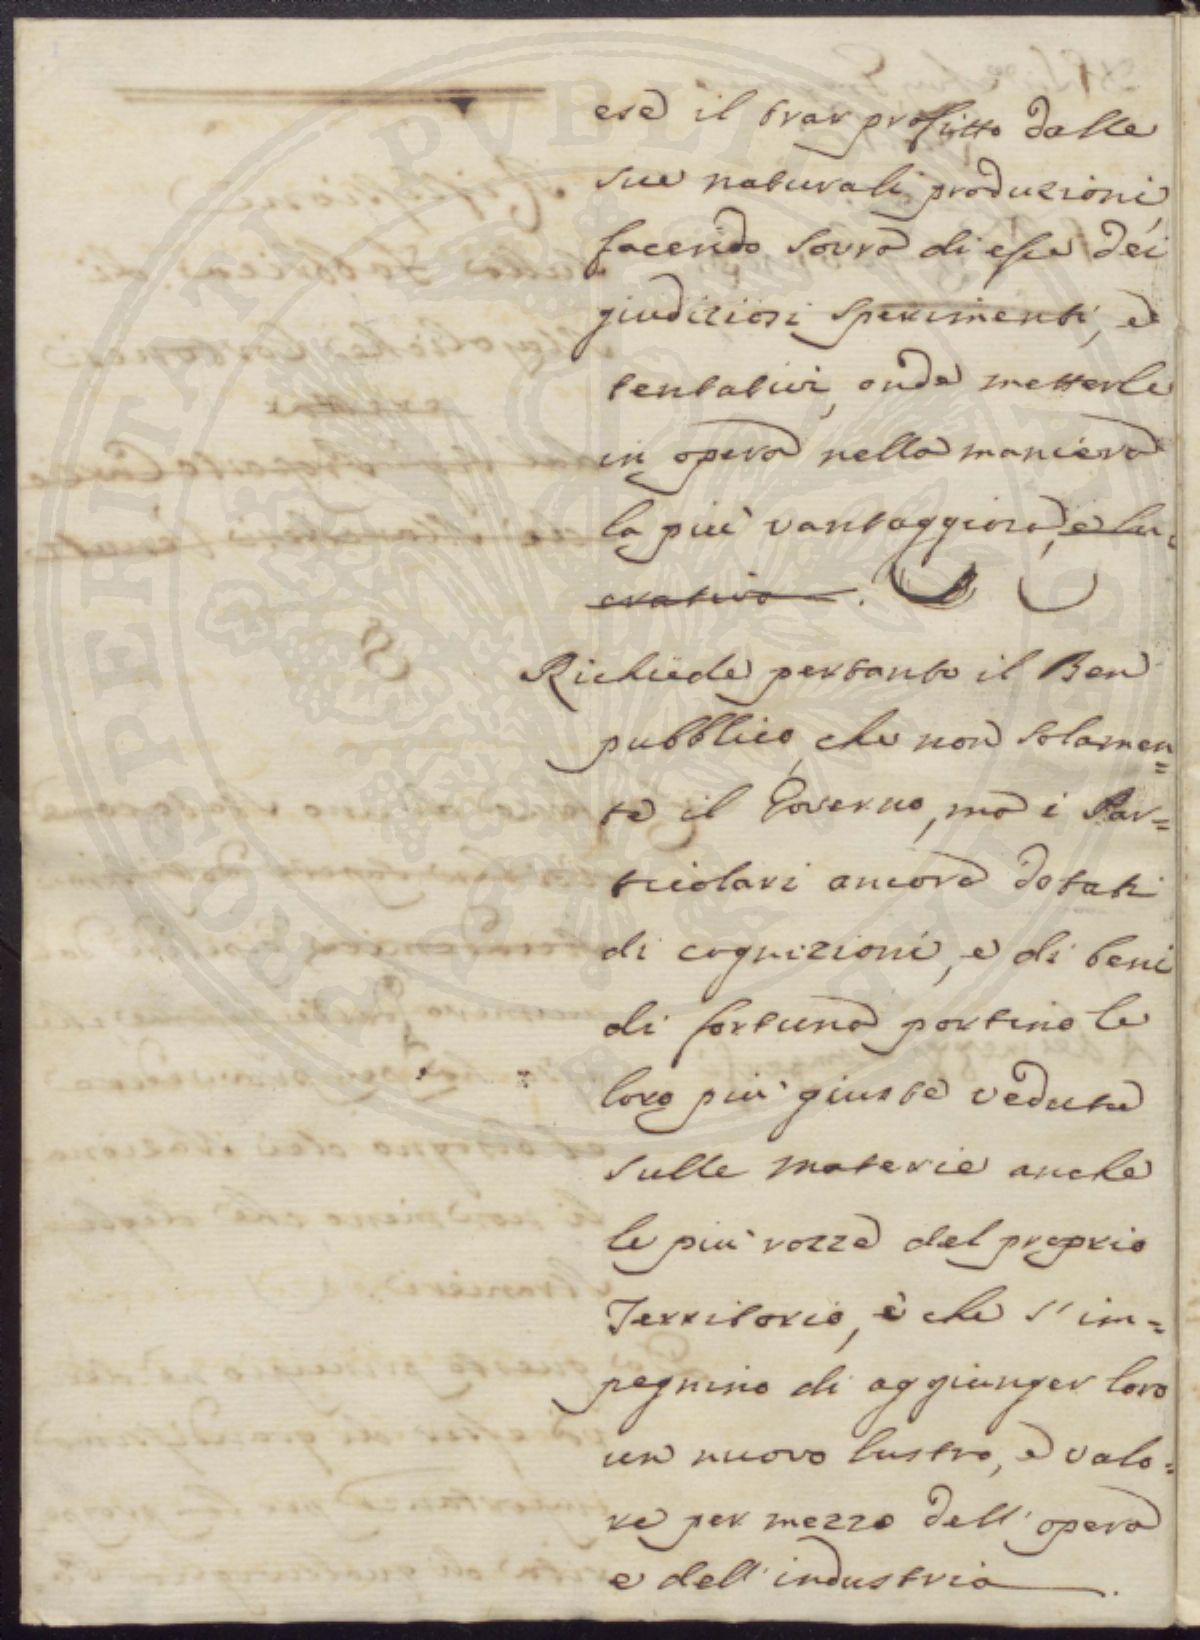 ese il trar profitto dalle
sue naturali produzioni,
facendo sovra di esse dei
giudiziosi sperimenti, e
tentativi, onde metterle
in opera nella maniera
la più vantaggiosa, e lu-
crativa.
Richiede pertanto il Ben
pubblico, che non solamen=
te il Governo, ma i Par=
ticolari ancora dotati
di cognizioni, e di beni
di fortuna portino le
loro più giuste vedute
sulle materie anche
le più rozze del proprio
Territorio, e che s'im=
pegnino di aggiunger loro
un nuovo lustro, e valo=
re per mezzo dell'opera
e dell'industria.